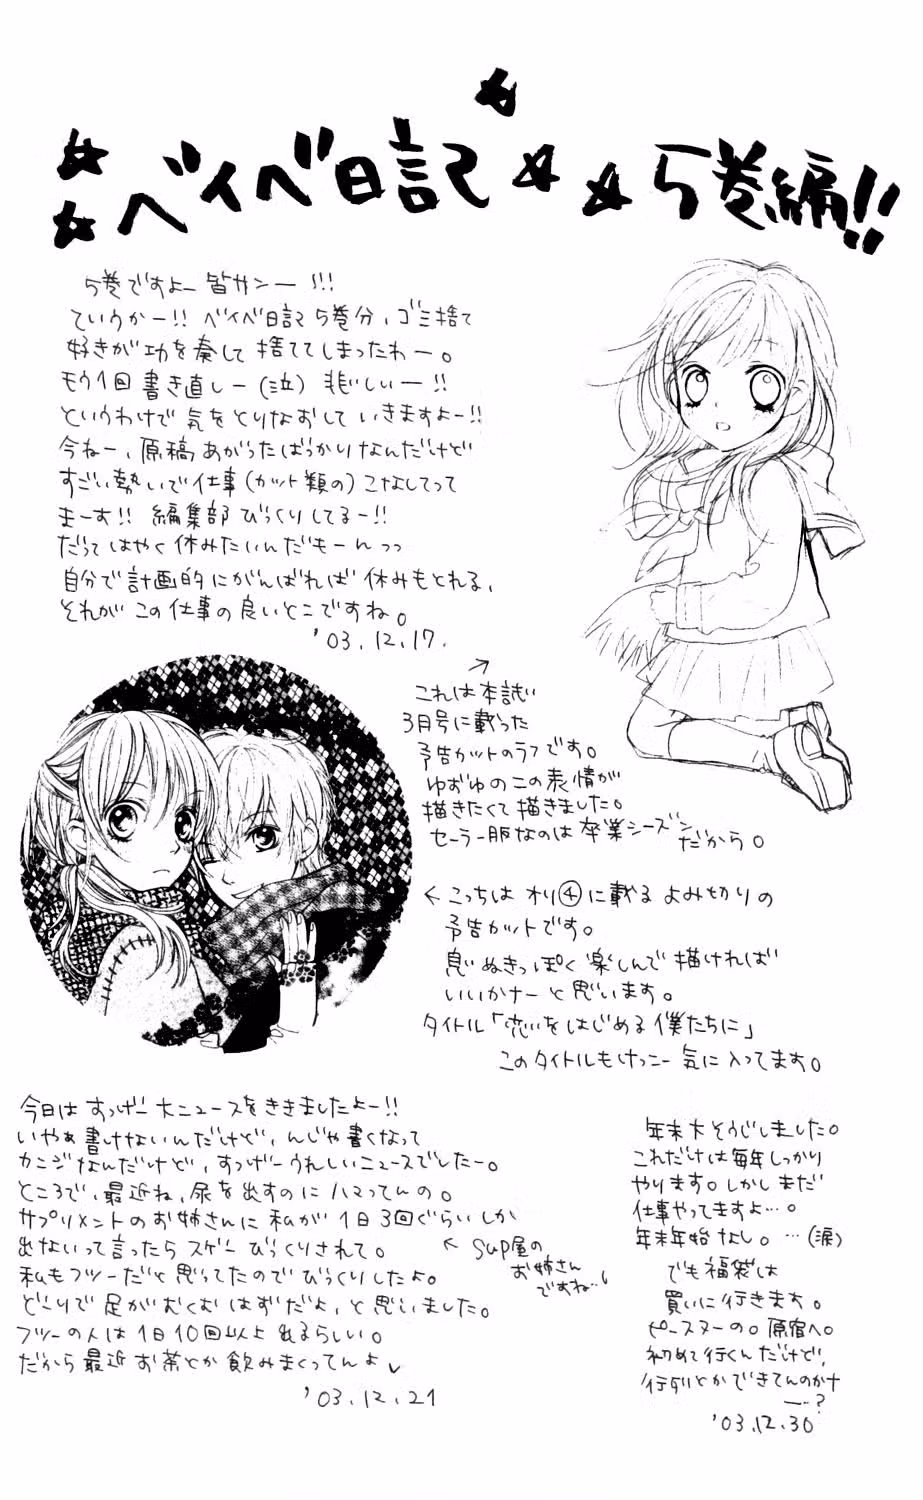 ベイベ日記 5巻編!!
5巻ですよー皆サンー!!!
ていうかー!! ベイベ日記5巻分、ゴミ捨て
好きが功を奏して捨ててしまったわー。
もう1回書き直しー(泣) 悲しいー!!
というわけで気をとりなおしていきますよー!!
今ねー、原稿あがったばっかりなんだけど
すごい勢いで仕事(カット類の)こなしてって
まーす!! 編集部びっくりしてるー!!
だってはやく休みたいんだもーんっっ
自分で計画的にがんばれば休みもとれる、
それがこの仕事の良いとこですね。
'03.12.17.
↗
これは本誌い
3月号に載った
予告カットのラフです。
ゆずゆのこの表情が
描きたくて描きました。
セーラー服なのは卒業シーズン
だから。
←こっちはオリ④に載るよみ切りの
予告カットです。
息ぬきっぽく楽しんで描ければ
いいかナーと思います。
タイトル「恋をはじめる僕たちに」
このタイトルもけっこー気に入ってます。
今日はすっげー大ニュースをききましたよー!!
いやぁ書けないんだけど、んじゃ書くなって
カンジなんだけど、すっげーうれしいニュースでしたー。
ところで、最近ね、尿を出すのにハマってんの。
サプリメントのお姉さんに私が1日3回ぐらいしか
出ないって言ったらスゲーびっくりされて。
← sup屋の
お姉さん
ですね…。
私もフツーだと思ってたのでびっくりしたよ。
どーりで足がむくむはずだよ、と思いました。
フツーの人は1日10回以上出るらしい。
だから最近お茶とか飲みまくってんよ
'03.12.21
年末大そうじしました。
これだけは毎年しっかり
やります。しかしまだ
仕事やってますよ…。
年末年始なし。…(涙)
でも福袋は
買いに行きます。
ピースヌーの。原宿へ。
初めて行くんだけど、
行列とかできてんのかナ
ー…?
'03.12.30